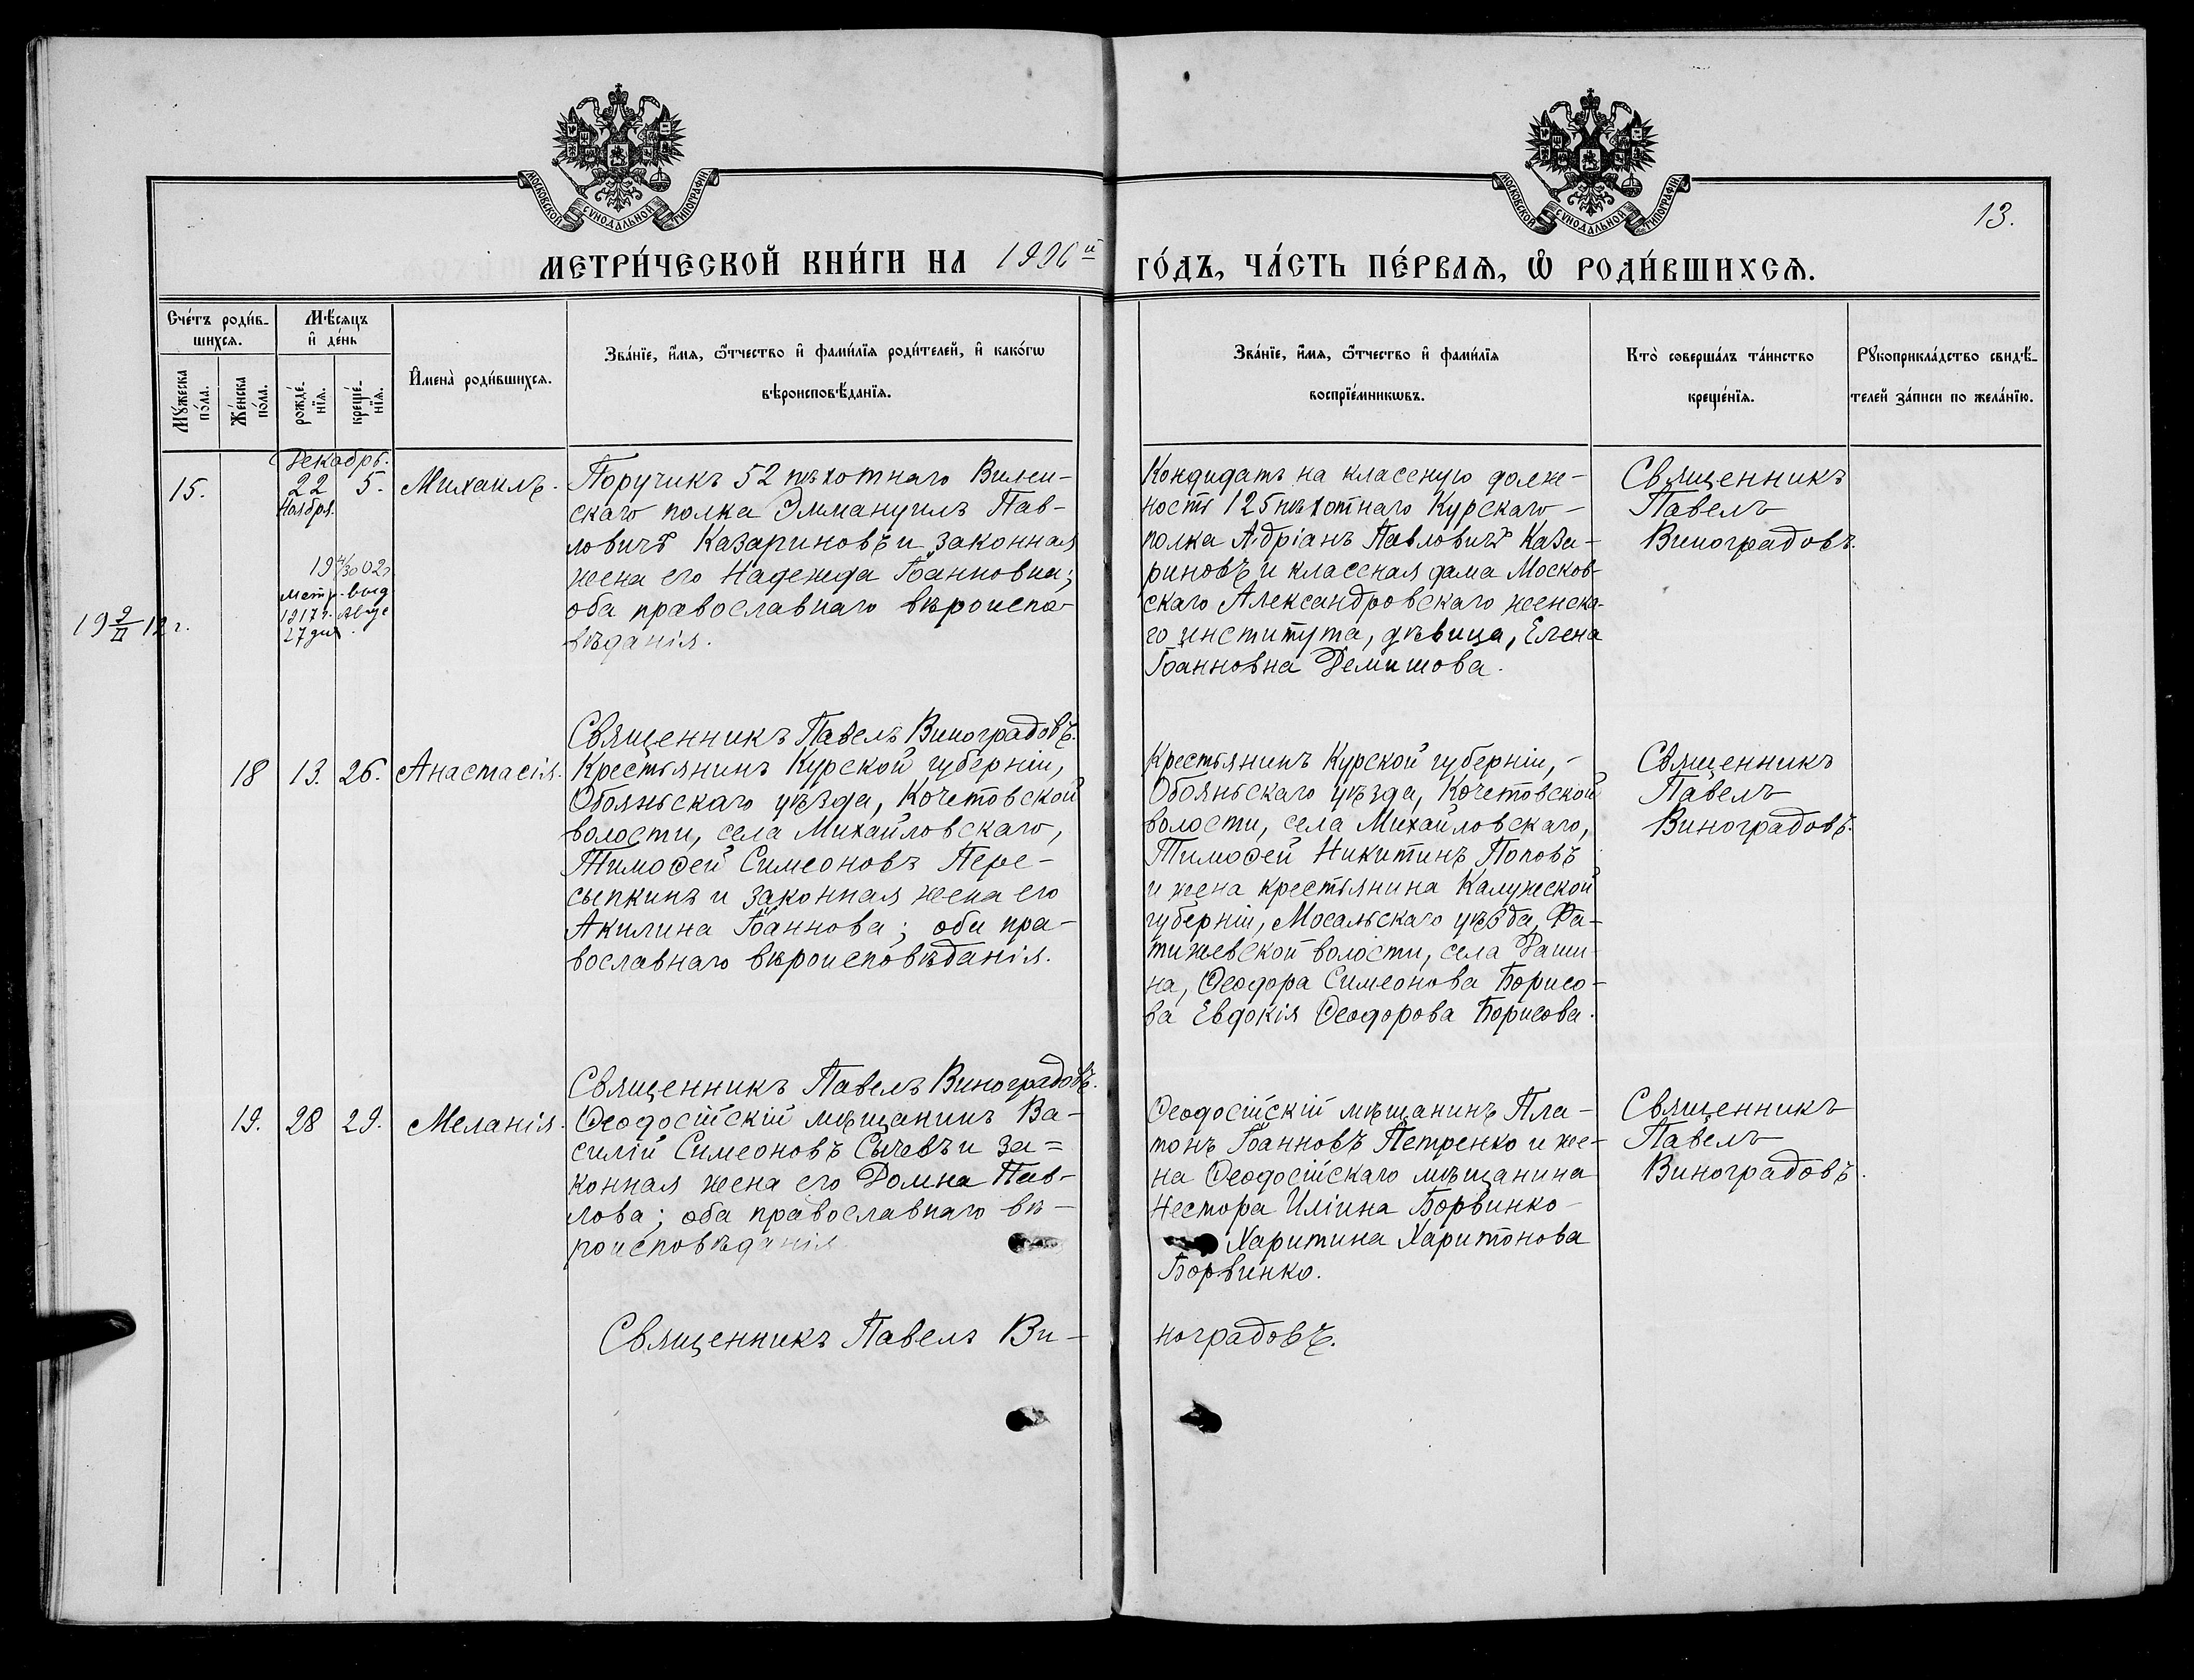 МОСКОВСКОЙ СѴНОДАЛЬНОЙ ТИПОГРАФІИ
МОСКОВСКОЙ СѴНОДАЛЬНОЙ ТИПОГРАФІИ
13.
МЕТРИ́ЧЕСКОЙ КНИ́ГИ НА
ГО́ДЪ, ЧА́СТЬ ПЕ́РВАѦ, Ѡ҆ РОДИ́ВШИХСѦ.
Сче́тъ роди́в-
шихсѧ.
Мꙋ́жеска
по́ла.
Же́нска
по́ла.
Мѣ́сѧцъ
и҆ де́нь
рожде́-
нїѧ.
креще́-
нїѧ.
И҆мена̀ роди́вшихсѧ.
Зва́нїе, и҆́мѧ, ѻ҆́тчество и҆ фами́лїѧ роди́телей, и҆ како́гѡ
вѣроисповѣ́данїѧ.
Зва́нїе, и҆́мѧ, ѻ҆́тчество и҆ фами́лїѧ
воспрїе́мникѡвъ.
Кто̀ соверша́лъ та́инство
креще́нїѧ.
Рꙋкоприкла́дство свидѣ́-
телей за́писи по жела́нїю.
Декабрь.
15.
22 5.
Ноября.
Михаилъ.
Поручикъ 52 пѣхотнаго Вилен-
скаго полка Эммануилъ Пав-
ловичъ Казариновъ и законная
жена его Надежда Іоанновна;
оба православнаго вѣроиспо-
вѣданія.
19 02
метр. выд
1917 г.
27 дня.
19 9/II 12 г.
Кондидатъ на классную долж-
ность 125 пѣхотнаго Курскаго
полка Адріанъ Павловичъ Каза-
риновъ и классная дама Москов-
скаго Александровскаго женска-
го института, дѣвица, Елена
Іоанновна Демишова.
Священникъ
Павелъ
Виноградовъ.
Священникъ Павелъ Виноградовъ.
18 13. 26. Анастасія.
Крестьянинъ Курской губерніи,
Обояньскаго уѣзда, Кочетовской
волости, села Михайловскаго,
Тимоѳей Симеоновъ Пере-
сыпкинъ и законная жена его
Акилина Іоаннова; оба пра-
вославнаго вѣроисповѣданія.
Крестьянинъ Курской губерніи, -
Обояньскаго уѣзда, Кочетовской
волости, села Михайловскаго,
Тимоѳей Никитинъ Поповъ
и жена крестьянина Калужской
губерніи, Мосальскаго уѣзда, Фа-
тижевской волости, села Даши-
на, Ѳеодора Симеонова Борисо-
ва Евдокія Ѳеодорова Борисова.
Священникъ
Павелъ
Виноградовъ.
Священникъ Павелъ Виноградовъ.
19. 28 29. Меланія.
Ѳеодосійскій мѣщанинъ Ва-
силій Симеоновъ Сычевъ и за=
конная жена его Домна Пав-
лова; оба православнаго вѣ-
роисповѣданія
Ѳеодосійскій мѣщанинъ Пла-
тонъ Іоанновъ Петренко и же-
на Ѳеодосійскаго мѣщанина
Нестора Иліина Борвинко
Харитина Харитонова
Борвинко.
Священникъ
Павелъ
Виноградовъ.
Священникъ Павелъ Ви-
ноградовъ.